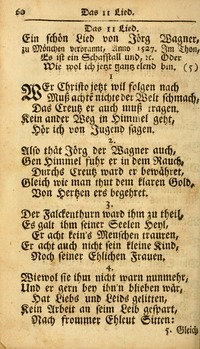 60 Das 11 Lied.
Das 11 Lied.
Ein schön Lied von Jörg Wagner,
zu München verbrannt, Anno 1527. Im Thon,
Es ist ein Schaffstall und, ꝛc. Oder
Wie wol ich jetzt gantz elend bin. (5)
1
WEr Christo jetzt wil folgen nach
Muß achtē nicht der Welt schmach,
Das Creutz er auch muß tragen,
Kein ander Weg in Himmel geht,
Hör ich von Jugend sagen.
2.
Also thät Jörg der Wagner auch,
Gen Himmel fuhr er in dem Rauch,
Durchs Creutz ward er bewähret,
Gleich wie man thut dem klaren Gold,
Von Hertzen ers begehret.
3.
Der Falckenthurn ward ihm zu theil,
Es galt ihm seiner Seelen Heyl,
Er acht kein's Menschen trauren,
Er acht auch nicht sein kleine Kind,
Noch seiner Ehlichen Frauen.
4.
Wiewol sie ihm nicht warn unmehr,
Und er gern bey ihn'n blieben wär,
Hat Liebs und Leids gelitten,
Kein Arbeit an seim Leib gespart,
Nach frommer Ehleut Sitten:
5. Gleich